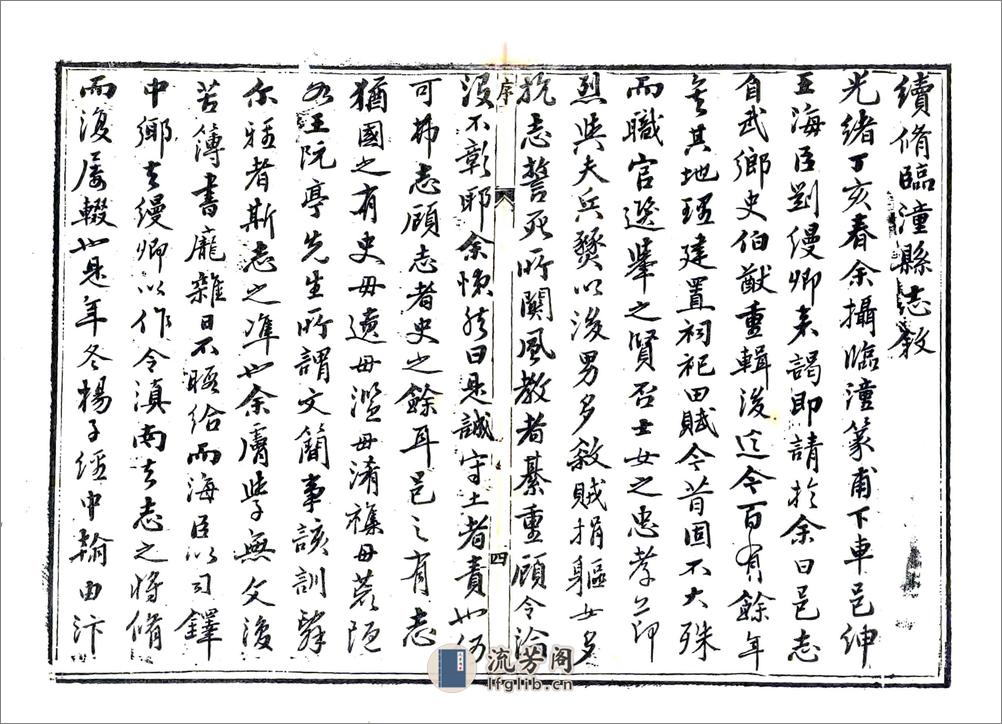 續脩臨潼縣志敘
光緒丁亥春余攝臨潼篆甫下車邑紳
王海臣劉縵卿來謁即請於余曰邑志
自武鄉史伯猷重輯後迄今百有餘年
矣其地理建置祠祀田賦今昔固不大殊
而職官選舉之賢否士女之忠孝節
烈與夫兵燹以後男多殺賊捐軀女多
抗志誓死所關風教者綦重顧令淪
序
四
沒不彰耶余悚然曰是誠守土者責也何
可拂志顧志者史之餘耳邑之有志
猶國之有史毋遺毋濫毋淆襍毋荒陋
如王阮亭先生所謂文簡事該訓辭
尔雅者斯志之準也余膚學無文復
苦簿書龐雜日不暇給而海臣以司鐸
中鄉去縵卿以作令滇南去志之將脩
而復屢輟也是年冬楊子經中翰由汴
流芳阁
lfglib.cn